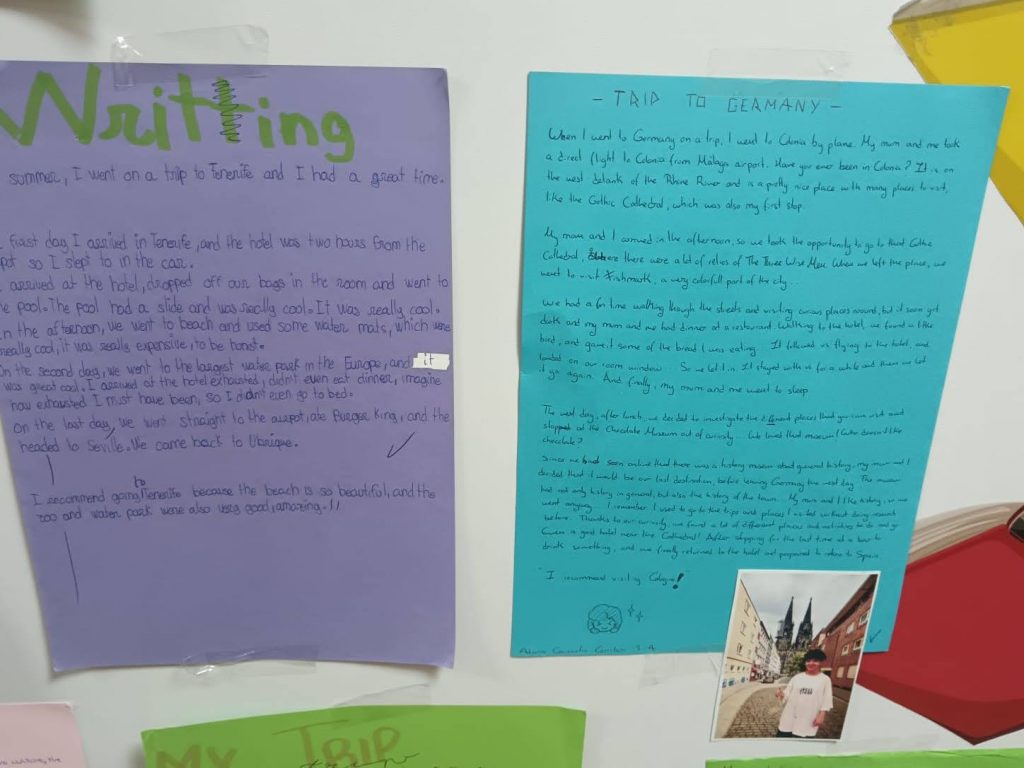 Writting
summer, I went on a trip to Tenerife and I had a great time.
first day, I arrived in Tenerife, and the hotel was two hours from the
so I slept to in the car.
arrived at the hotel, dropped off our bags in the room and went to
pool. The pool had a slide and was really cool. It was really cool.
in the afternoon, we went to beach and used some water mats, which were
really cool, it was really expensive, to be honest.
On the second day, we went to the largest water park in the Europe, and it
was great cool. I arrived at the hotel exhausted, didn't even eat dinner, imagine
how exhausted I must have been, so I didn't even go to bed.
On the last day, we went straight to the airpot, ate Burger King, and the
headed to Seville. We came back to Ubrique.
I recommend going to Tenerife because the beach is so beautiful, and the
zoo and water park were also very good, amazing.!!
- TRIP TO GERMANY -
When I went to Germany on a trip, I went to Colonia by plane. My mum and me took
a direct flight to Colonia from Málaga airport. Have you ever been in Colonia? It is on
the west of the Rhine River and is a pretty nice place with many places to visit,
like the Gothic Cathedral, which was also my first stop.
My mum and I arrived in the afternoon, so we took the opportunity to go to that Gothic
Cathedral, there were a lot of relics of The Three Wise Men. When we left the place, we
went to visit Fishmarkt, a very colorfull part of the city...
We had a walking though the streets and visiting curious places around, but it soon got
dark and my mum and me had dinner at a restaurant. Walking to the hotel, we found a
bird, and gave it some of the bread I was eating. It followed us flying to the hotel, and
landed on our room window. So we let it in. It stayed with us for a while and then we let
it go again. And finally, my mum and me went to sleep.
The next day, after lunch, we decided to investigate the different places that you can visit and
stopped at the Chocolate Museum out of curiosity. loved that museum! doesn't like
chocolate?
Since we had seen online that there was a history museum about general history, my mum and I
decided that it would be our last destination, before leaving Germany the next day. The museum
had not only history in general, but also the history of the town. My mum and I like history, so we
went anyway. I remember I used to go to the trips and places I without doing research
before. Thanks to our curiosity we found a lot of different places and to do and go.
Even a good hotel near the Cathedral! After stopping for the last time at a bar to
drink something, and we finally returned to the hotel and prepared to return to Spain.
"I recommend visiting Cologne!"
MY TRIP